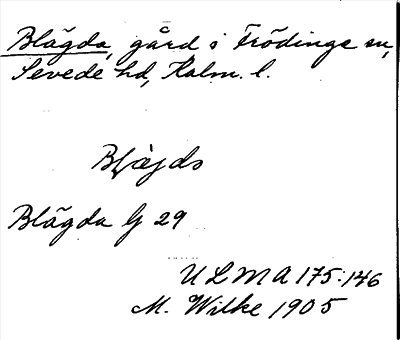 Blägda, gård i Frödinge sn,
Sevede hd, Kalm. l.
Blägda G 29
ULMA 175:146
M. Wilke 1905